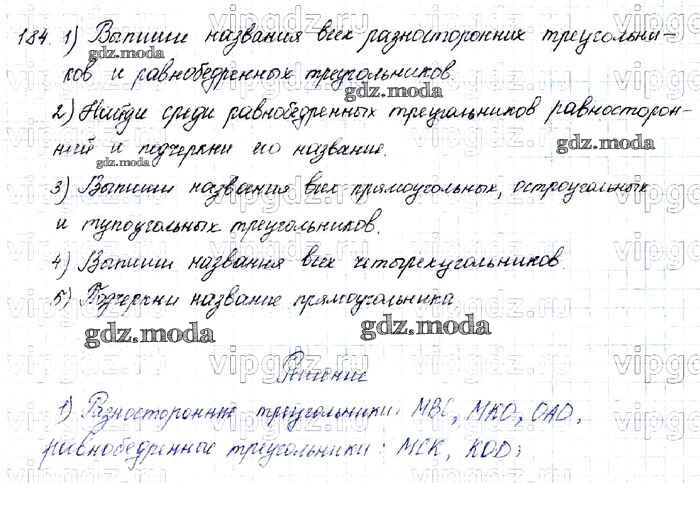 184. 1) Выпиши названия всех разносторонних треугольни-
ков и равнобедренных треугольников.
2) Найди среди равнобедренных треугольников равносторон-
ний и подчеркни его название.
3) Выпиши названия всех прямоугольных, остроугольных
и тупоугольных треугольников.
4) Выпиши названия всех четырехугольников.
5) Подчеркни название прямоугольника
gdz.moda gdz.moda
Решение
1) Разносторонние треугольники: МВС, МКО, ОАД,
равнобедренные треугольники: МСК, КОД;